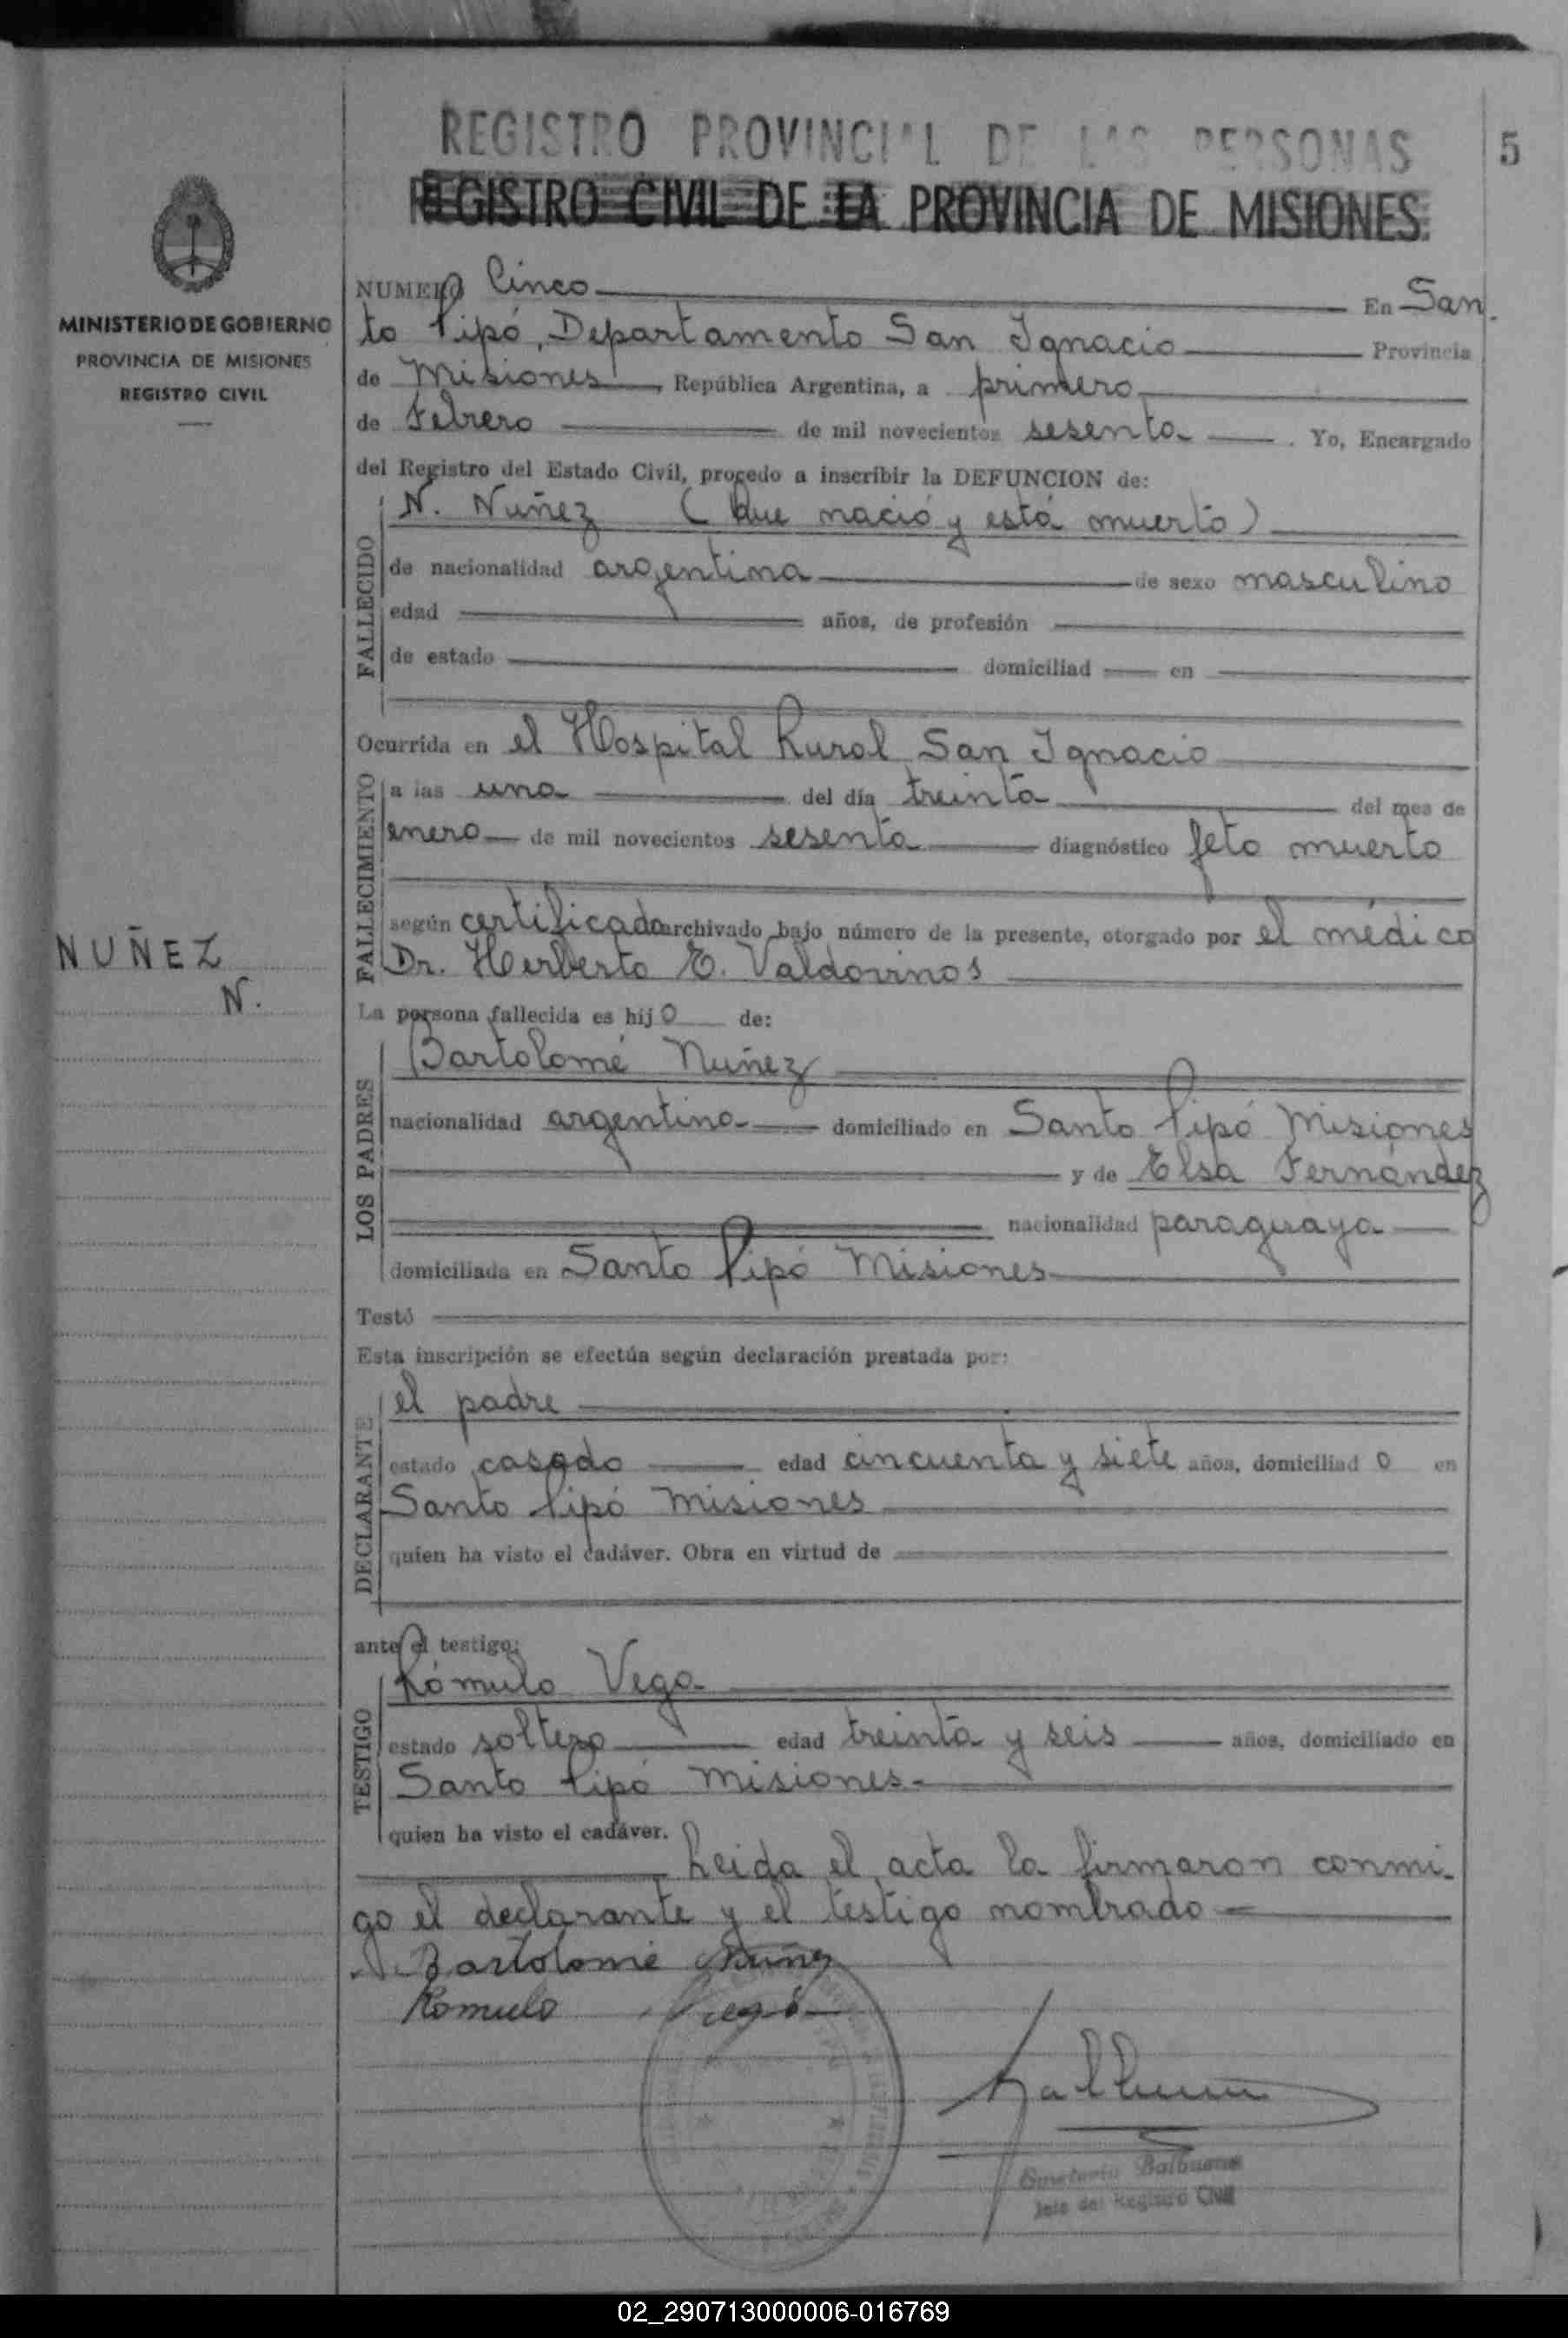 REGISTRO PROVINCIAL DE LAS PERSONAS
5
REGISTRO CIVIL DE LA PROVINCIA DE MISIONES
MINISTERIO DE GOBIERNO
PROVINCIA DE MISIONES
REGISTRO CIVIL
NUMERO Cinco En San
to Pipó, Departamento San Ignacio Provincia
de Misiones, República Argentina, a primero
de Febrero de mil novecientos sesenta. Yo, Encargado
del Registro del Estado Civil, procedo a inscribir la DEFUNCION de:
FALLECIDO
N. Nuñez (Que nació y está muerto)
de nacionalidad argentina de sexo masculino
edad años, de profesión
de estado domiciliad en
Ocurrida en el Hospital Rural San Ignacio
FALLECIMIENTO
a las una del día treinta del mes de
enero de mil novecientos sesenta diagnóstico feto muerto
según certificado archivado bajo número de la presente, otorgado por el médico
Dr. Herberto E. Valdovinos
NUÑEZ
N.
La persona fallecida es hijo de:
LOS PADRES
Bartolomé Nuñez
nacionalidad argentina domiciliado en Santo Pipó Misiones
y de Elsa Fernández
nacionalidad paraguaya
domiciliada en Santo Pipó Misiones
Testó
Esta inscripción se efectúa según declaración prestada por:
DECLARANTE
el padre
estado casado edad cincuenta y siete años, domiciliad o en
Santo Pipó Misiones
quien ha visto el cadáver. Obra en virtud de
ante el testigo:
TESTIGO
Rómulo Vega
estado soltero edad treinta y seis años, domiciliado en
Santo Pipó Misiones.
quien ha visto el cadáver.
Leida el acta la firmaron conmi-
go el declarante y el testigo nombrado
Bartolomé Nuñez
Romulo Vega
Balbuena
Jefe del Registro Civil
02_290713000006-016769